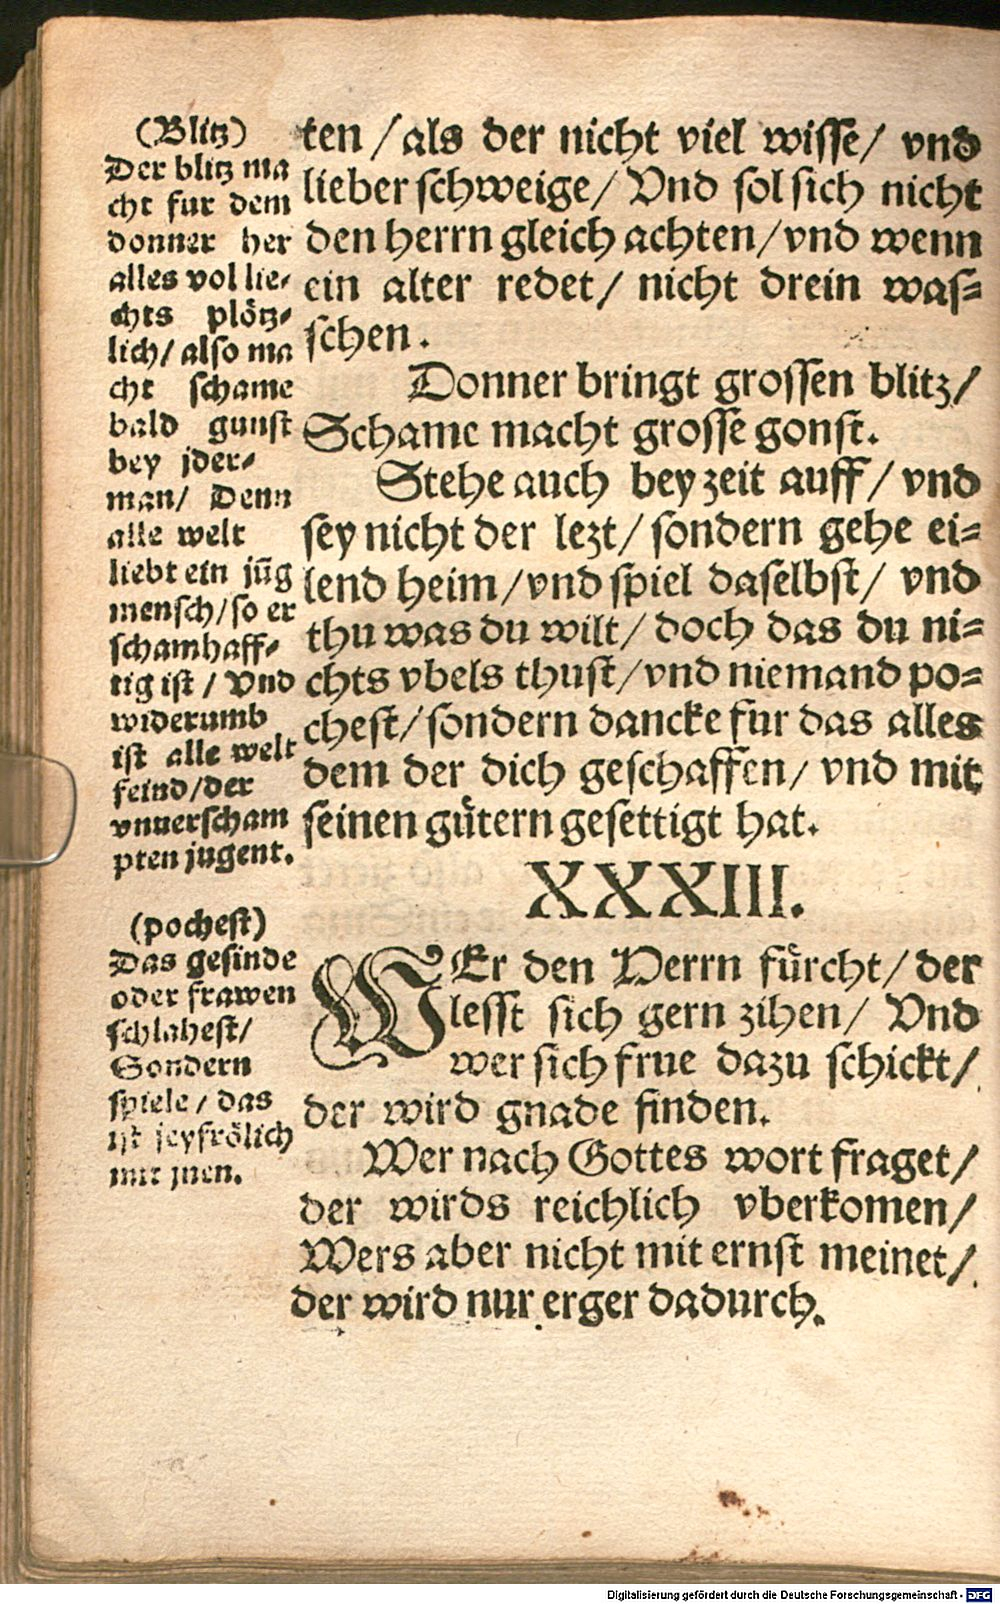 (Blitz)
Der blitz ma
cht fur dem
donner her
alles vol lie-
chts plötz-
lich/ also ma
cht schame
bald gunst
bey jder-
man/ Denn
alle welt
liebt ein jūg
mensch/ so er
schamhaff-
tig ist / Vnd
widerumb
ist alle welt
feind/der
vnuerscham
pten jugent.
(pochest)
Das gesinde
oder frawen
schlahest/
Sondern
spiele / das
ist seyfrölich
mit jnen.
ten / als der nicht viel wisse/ vnd
lieber schweige/ Vnd sol sich nicht
den herrn gleich achten/vnd wenn
ein alter redet/ nicht drein was=
schen.
Donner bringt grossen blitz/
Schame macht grosse gonst.
Stehe auch bey zeit auff / vnd
sey nicht der lezt/ sondern gehe ei=
lend heim /vnd spiel daselbst/ vnd
thu was du wilt/ doch das du ni=
chts vbels thust/vnd niemand po=
chest/ sondern dancke fur das alles
dem der dich geschaffen/ vnd mit
seinen gütern gesettigt hat.
XXXIII.
WEr den Herrn fürcht/ der
lesst sich gern zihen/ Vnd
wer sich frue dazu schickt/
der wird gnade finden.
Wer nach Gottes wort fraget/
der wirds reichlich vberkomen/
Wers aber nicht mit ernst meinet/
der wird nur erger dadurch.
Digitalisierung gefördert durch die Deutsche Forschungsgemeinschaft - DFG